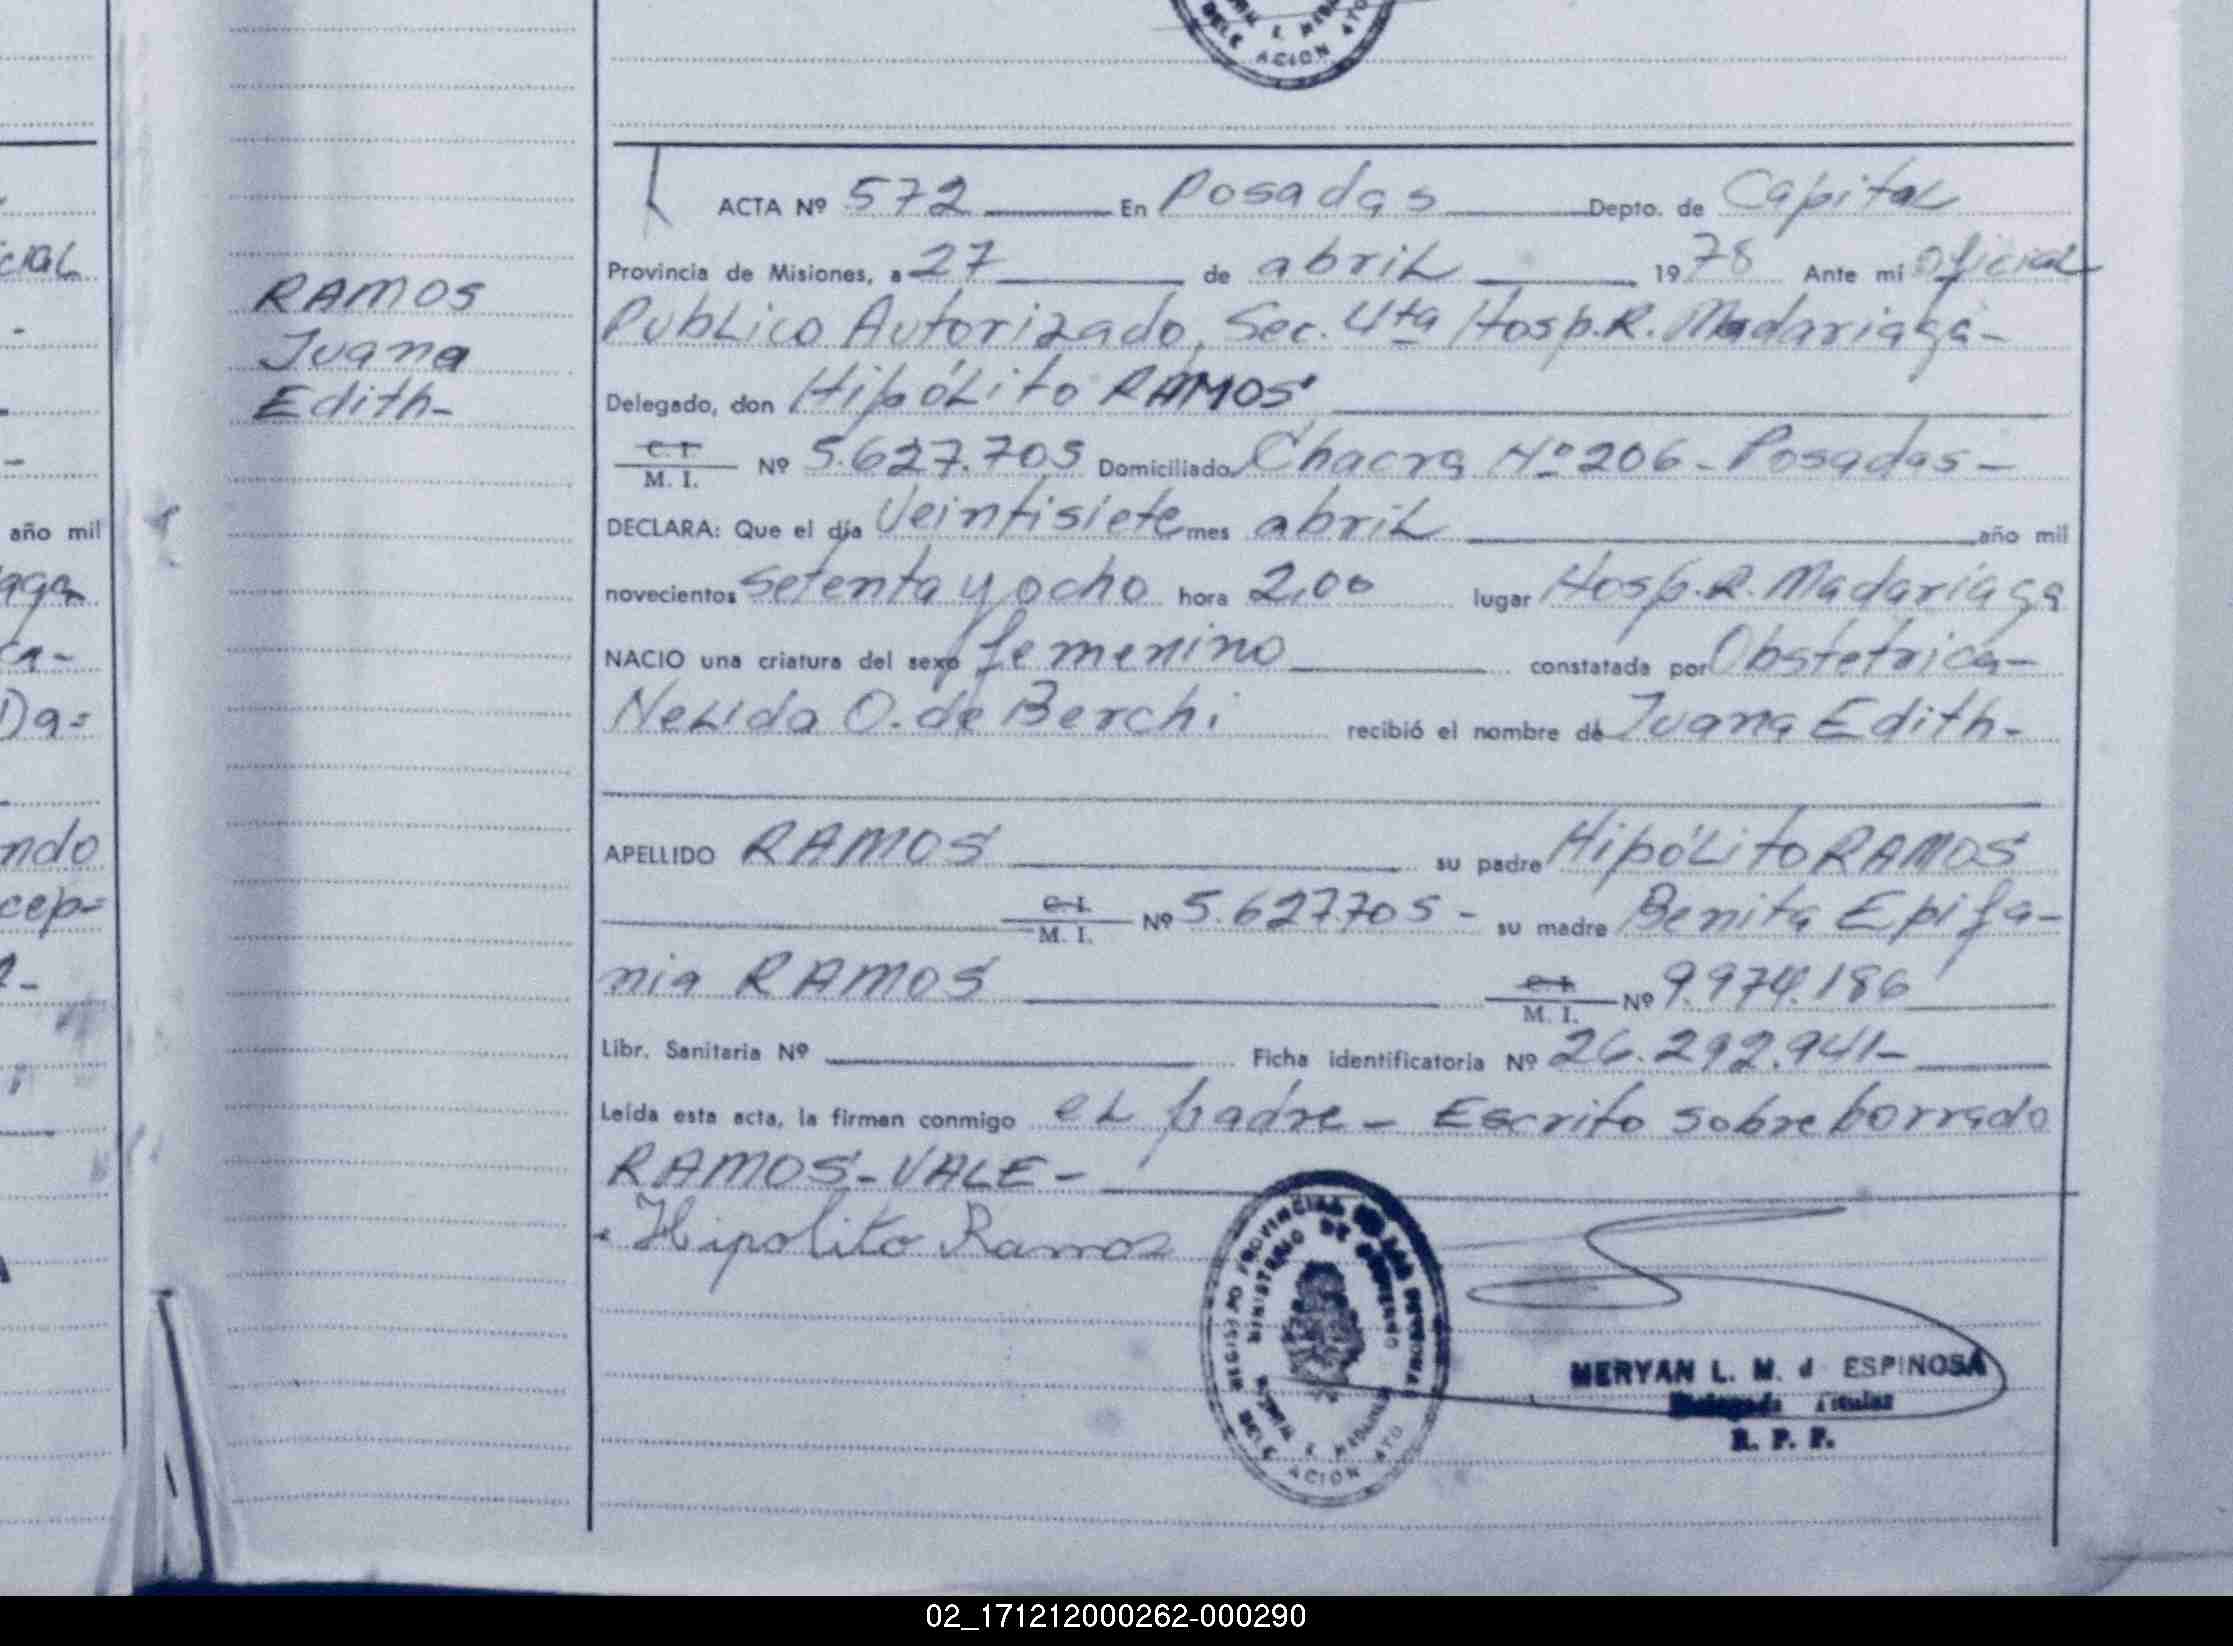 ACTA Nº 572 En Posadas Depto. de Capital
Provincia de Misiones, a 27 de abril 1978 Ante mi Oficial
Publico Autorizado, Sec. 4ta Hosp. R. Madariaga-
RAMOS
Juana
Edith-
Delegado, don Hipólito RAMOS
C. I. M. I. Nº 5.627.705 Domiciliado Chacra Nº 206 - Posadas -
DECLARA: Que el día Veintisiete mes abril año mil
novecientos setenta y ocho hora 2,00 lugar Hosp. R. Madariaga
NACIO una criatura del sexo femenino constatada por Obstetrica-
Nelida O. de Berchi recibió el nombre de Juana Edith-
APELLIDO RAMOS su padre Hipólito RAMOS
C. I. M. I. Nº 5.627.705 - su madre Benita Epifa-
nia RAMOS C. I. M. I. Nº 9.974.186
Libr. Sanitaria Nº Ficha identificatoria Nº 26.292.941-
Leída esta acta, la firman conmigo el padre - Escrito sobre borrado
RAMOS - VALE -
Hipolito Ramos
MERYAN L. M. d ESPINOSA
Delegada Titular
R. P. P.
año mil
02_171212000262-000290